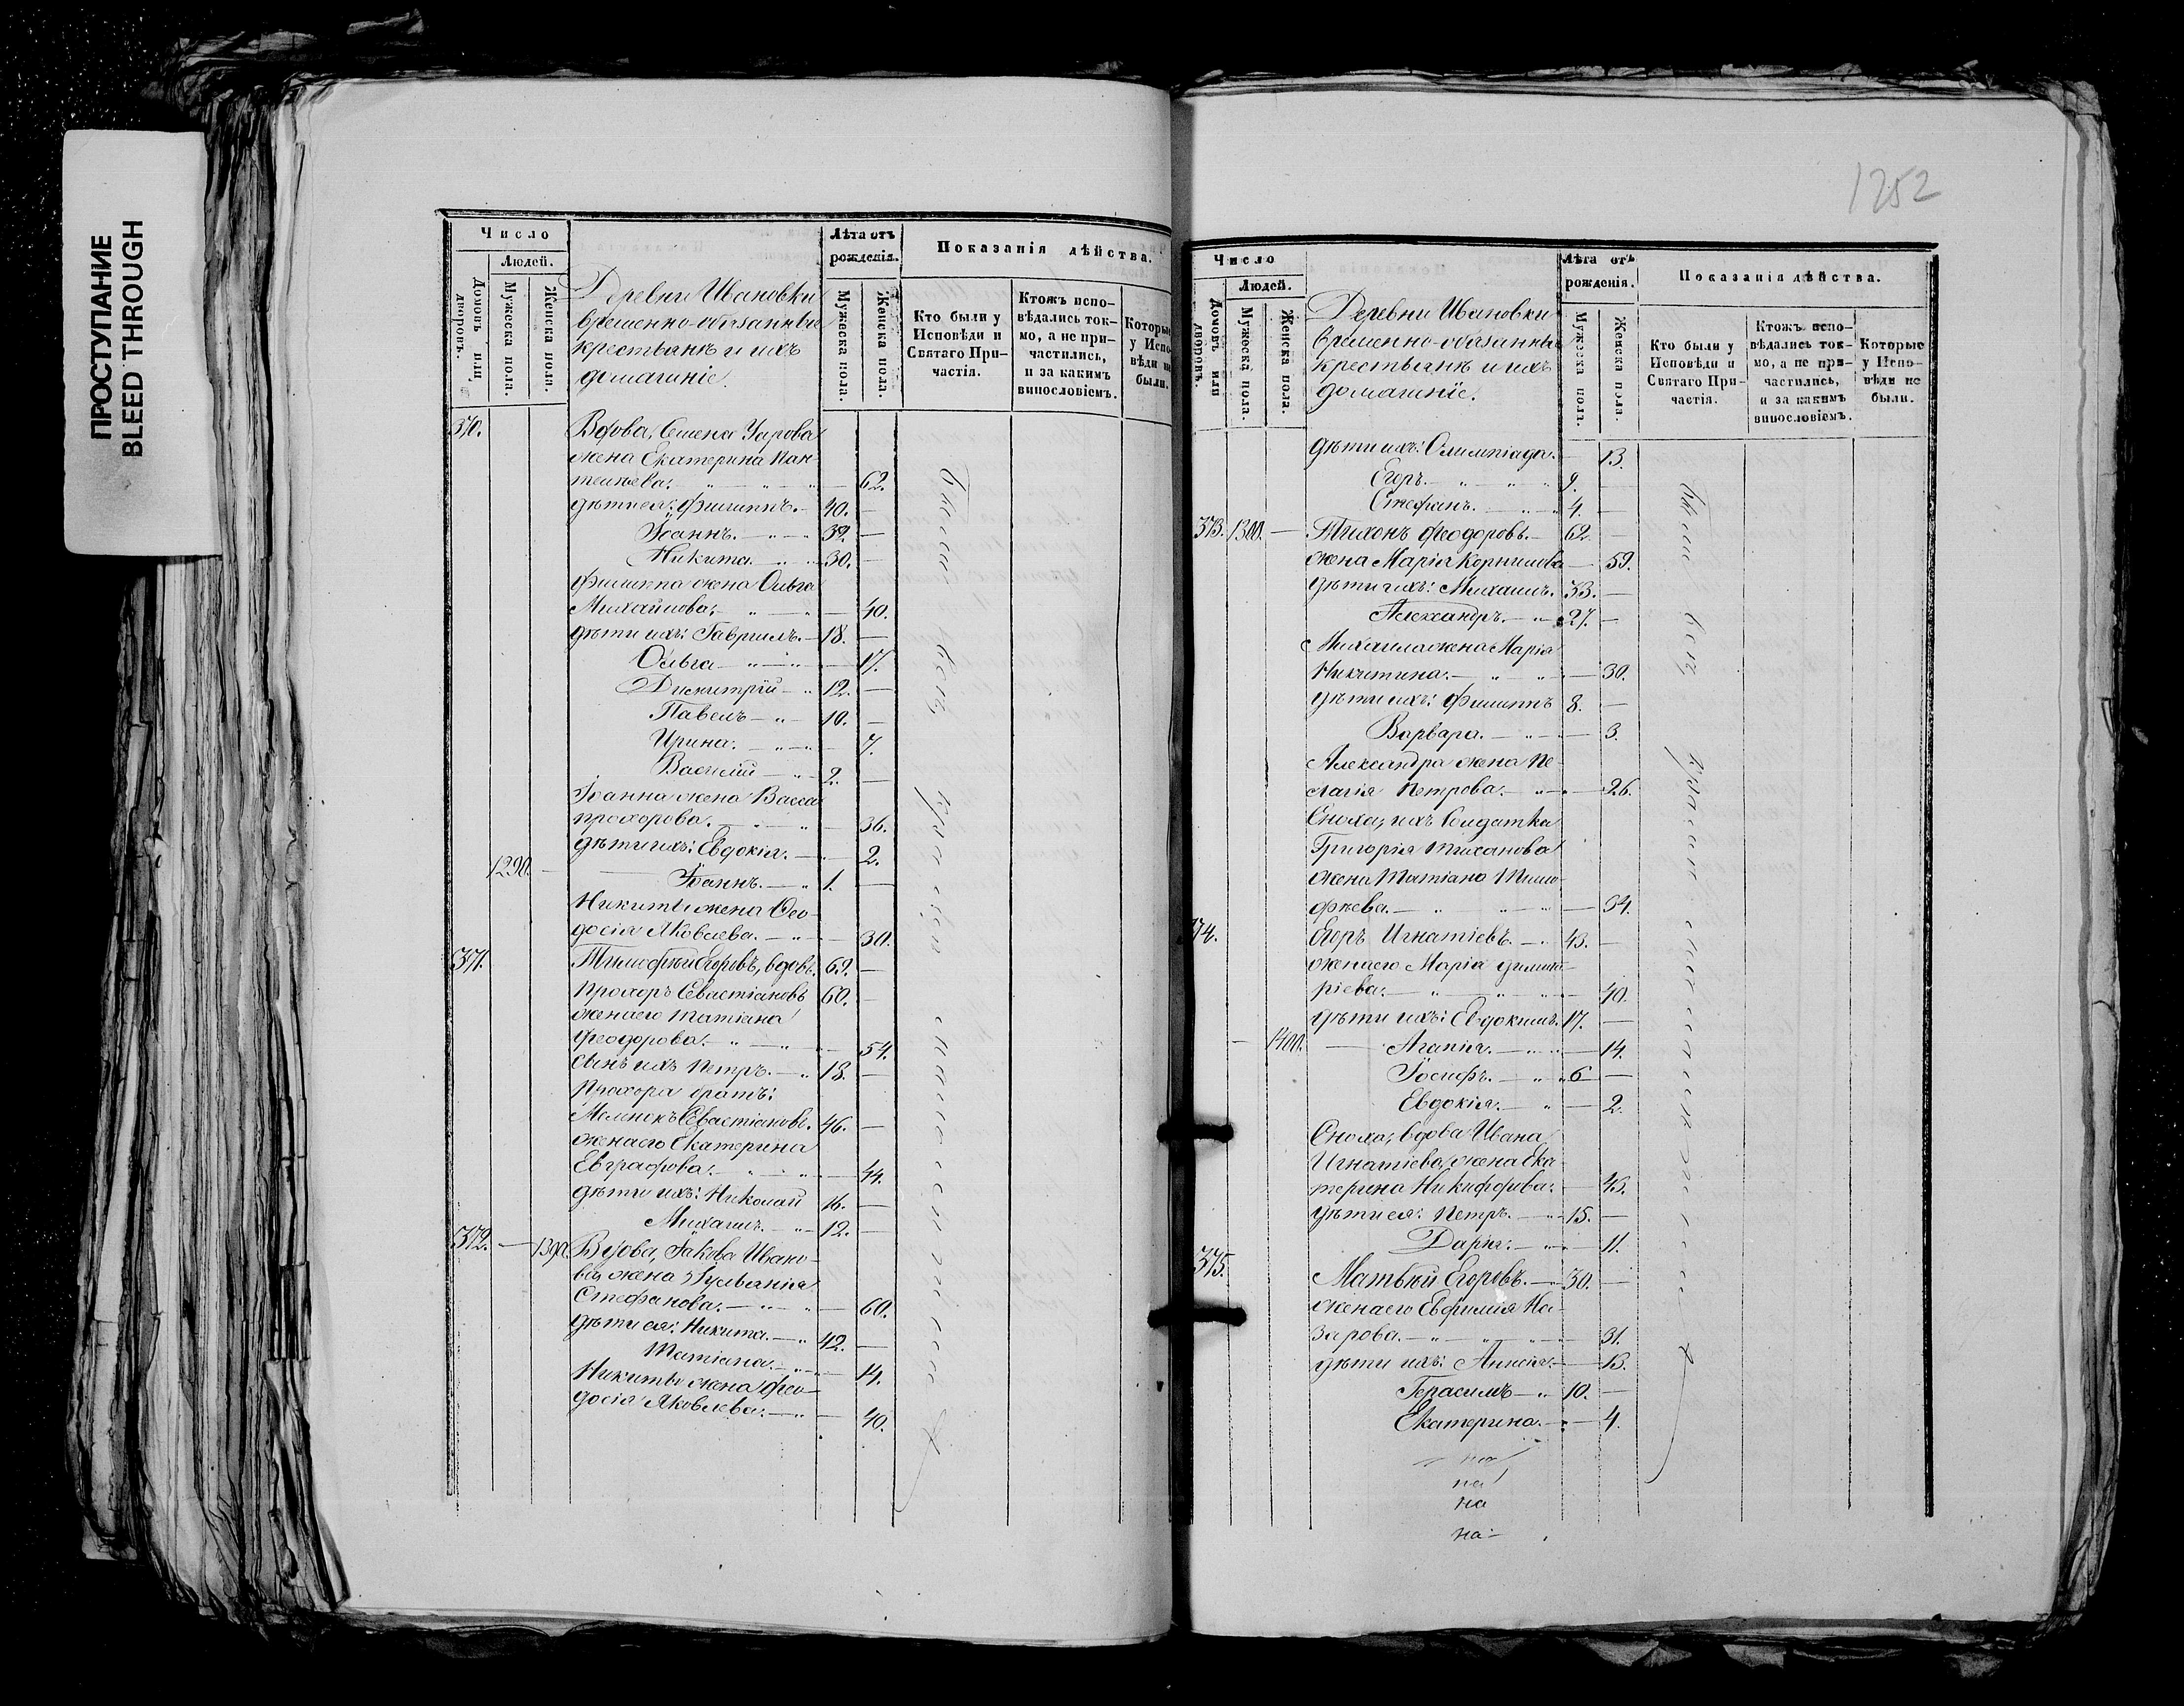 ПРОСТУПАНИЕ
BLEED THROUGH
Число
Людей.
Домовъ или дворовъ.
Мужеска пола.
Женска пола.
Деревни Ивановки
временно-обязанные
крестьянѣ и ихъ
домашніе.
Лѣта отъ
рожденія.
Мужеска пола.
Женска пола.
Показанія дѣйства.
Кто были у
Исповѣди и
Святаго При-
частія.
Ктожъ испо-
вѣдались ток-
мо, а не при-
частились,
и за какимъ
винословіемъ.
Которые
у Испо-
вѣди не
были.
370. Вдова, Семена Уарова
жена Екатерина Пан-
телѣева. — 62.
дѣти ея: Филиппъ. — 40. —
Іоаннъ. — 39. —
Никита. — 30. —
Филиппа жена Ольга
Михайлова; — 40.
дѣти ихъ: Гавріилъ. — 18. —
Ольга — 17.
Димитрій — 12. —
Павелъ — 10. —
Ирина. — 7.
Василій — 2. —
Іоанна жена Васса
Прохорова. — 36.
дѣти ихъ: Евдокія. — 2.
1290. — Іоаннъ. — 1. —
Никиты жена Ѳео-
досія Яковлева. — 30.
371. Тимофѣй Егоровъ, вдовъ. 69. —
Прохоръ Севастіановъ 60. —
жена его Татіана
Феодорова. — 54.
Сынъ ихъ Петръ. — 18. —
Прохора братъ:
Севастіановъ. 46. —
жена его Екатерина
Евграфова. — 44.
дѣти ихъ: Николай 16. —
Михаилъ. — 12. —
372. — 1390. Вдова, Іакова Ивано-
ва жена Іуліанія
Стефанова. — 60.
дѣти ея: Никита. — 42. —
Татіана. — 14.
Никиты жена Фео-
досія Яковлева. — 40.
Были всѣ
1252
Число
Людей.
Домовъ или дворовъ.
Мужеска пола.
Женска пола.
Деревни Ивановки
временно-обязанные
крестьянѣ и ихъ
домашніе.
Лѣта отъ
рожденія.
Мужеска пола.
Женска пола.
Показанія дѣйства.
Кто были у
Исповѣди и
Святаго При-
частія.
Ктожъ испо-
вѣдались ток-
мо, а не при-
частились,
и за какимъ
винословіемъ.
Которые
у Испо-
вѣди не
были.
дѣти ихъ: Олимпіада. — 13.
Егоръ. — 9. —
Стефанъ. — 4. —
373. 1300. — Тихонъ Феодоровъ. — 62. —
жена Марія Корнилова — 59.
дѣти ихъ: Михаилъ. 33. —
Александръ. — 27. —
Михаила жена Марія
Никитина. — 30.
дѣти ихъ: Филиппъ 8. —
Варвара. — 3.
Александра жена Пе-
лагія Петрова. — 26.
Сноха, ихъ Солдатка
Григорія Тиханова
жена Татіана Тимо-
фѣева. — 34.
374. Егоръ Игнатіевъ. — 43. —
жена его Марія Димит-
ріева. — 40.
дѣти ихъ: Евдокимъ. 17. —
— 1400. — Агапія. — 14.
Іосифъ. — 6 —
Евдокія. — 2.
Сноха, вдова Ивана
Игнатіева жена Ека-
терина Никифорова. — 45.
дѣти ея: Петръ. — 15. —
Дарія. — 11.
375. Матвѣй Егоровъ. — 30. —
жена его Евфимія На-
зарова. — 31.
дѣти ихъ: Анисія. — 13.
Герасимъ — 10. —
Екатерина. — 4.
на
на
на
на
Были всѣ